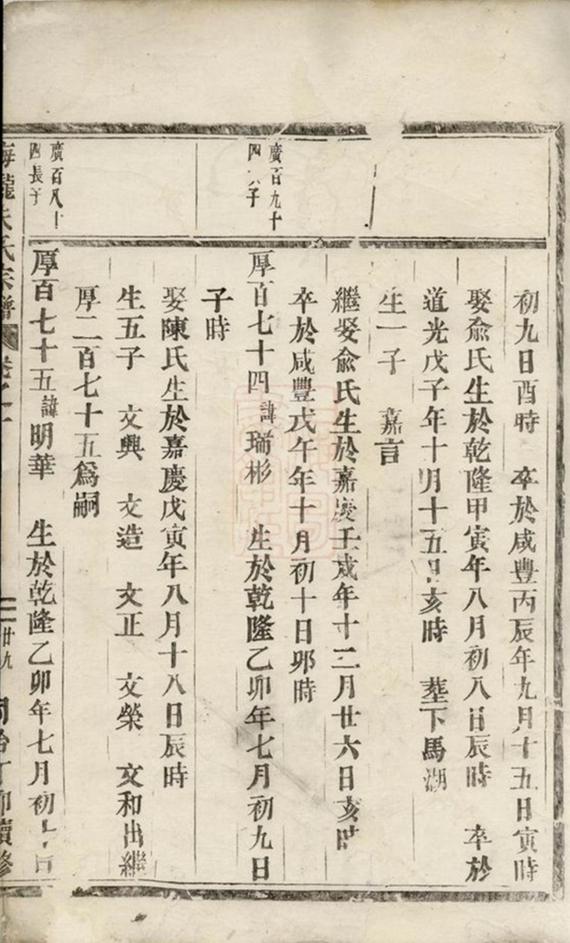 初九日酉時 卒於咸豐丙辰年九月十五日寅時
娶俞氏生於乾隆甲寅年八月初八日辰時 卒於
道光戊子年十月十五日亥時 塟下馬湖
生一子 嘉言
繼娶俞氏生於嘉慶壬戌年十二月廿六日亥時
卒於咸豐戊午年十月初十日卯時
廣百九十
四 子
厚百七十四諱瑞彬 生於乾隆乙卯年七月初九日
子時
娶陳氏生於嘉慶戊寅年八月十八日辰時
生五子 文興 文造 文正 文榮 文和出繼
厚二百七十五為嗣
廣百八十
四長子
厚百七十五諱明華 生於乾隆乙卯年七月初 日
氏宗譜 廿九 同治丁卯續修